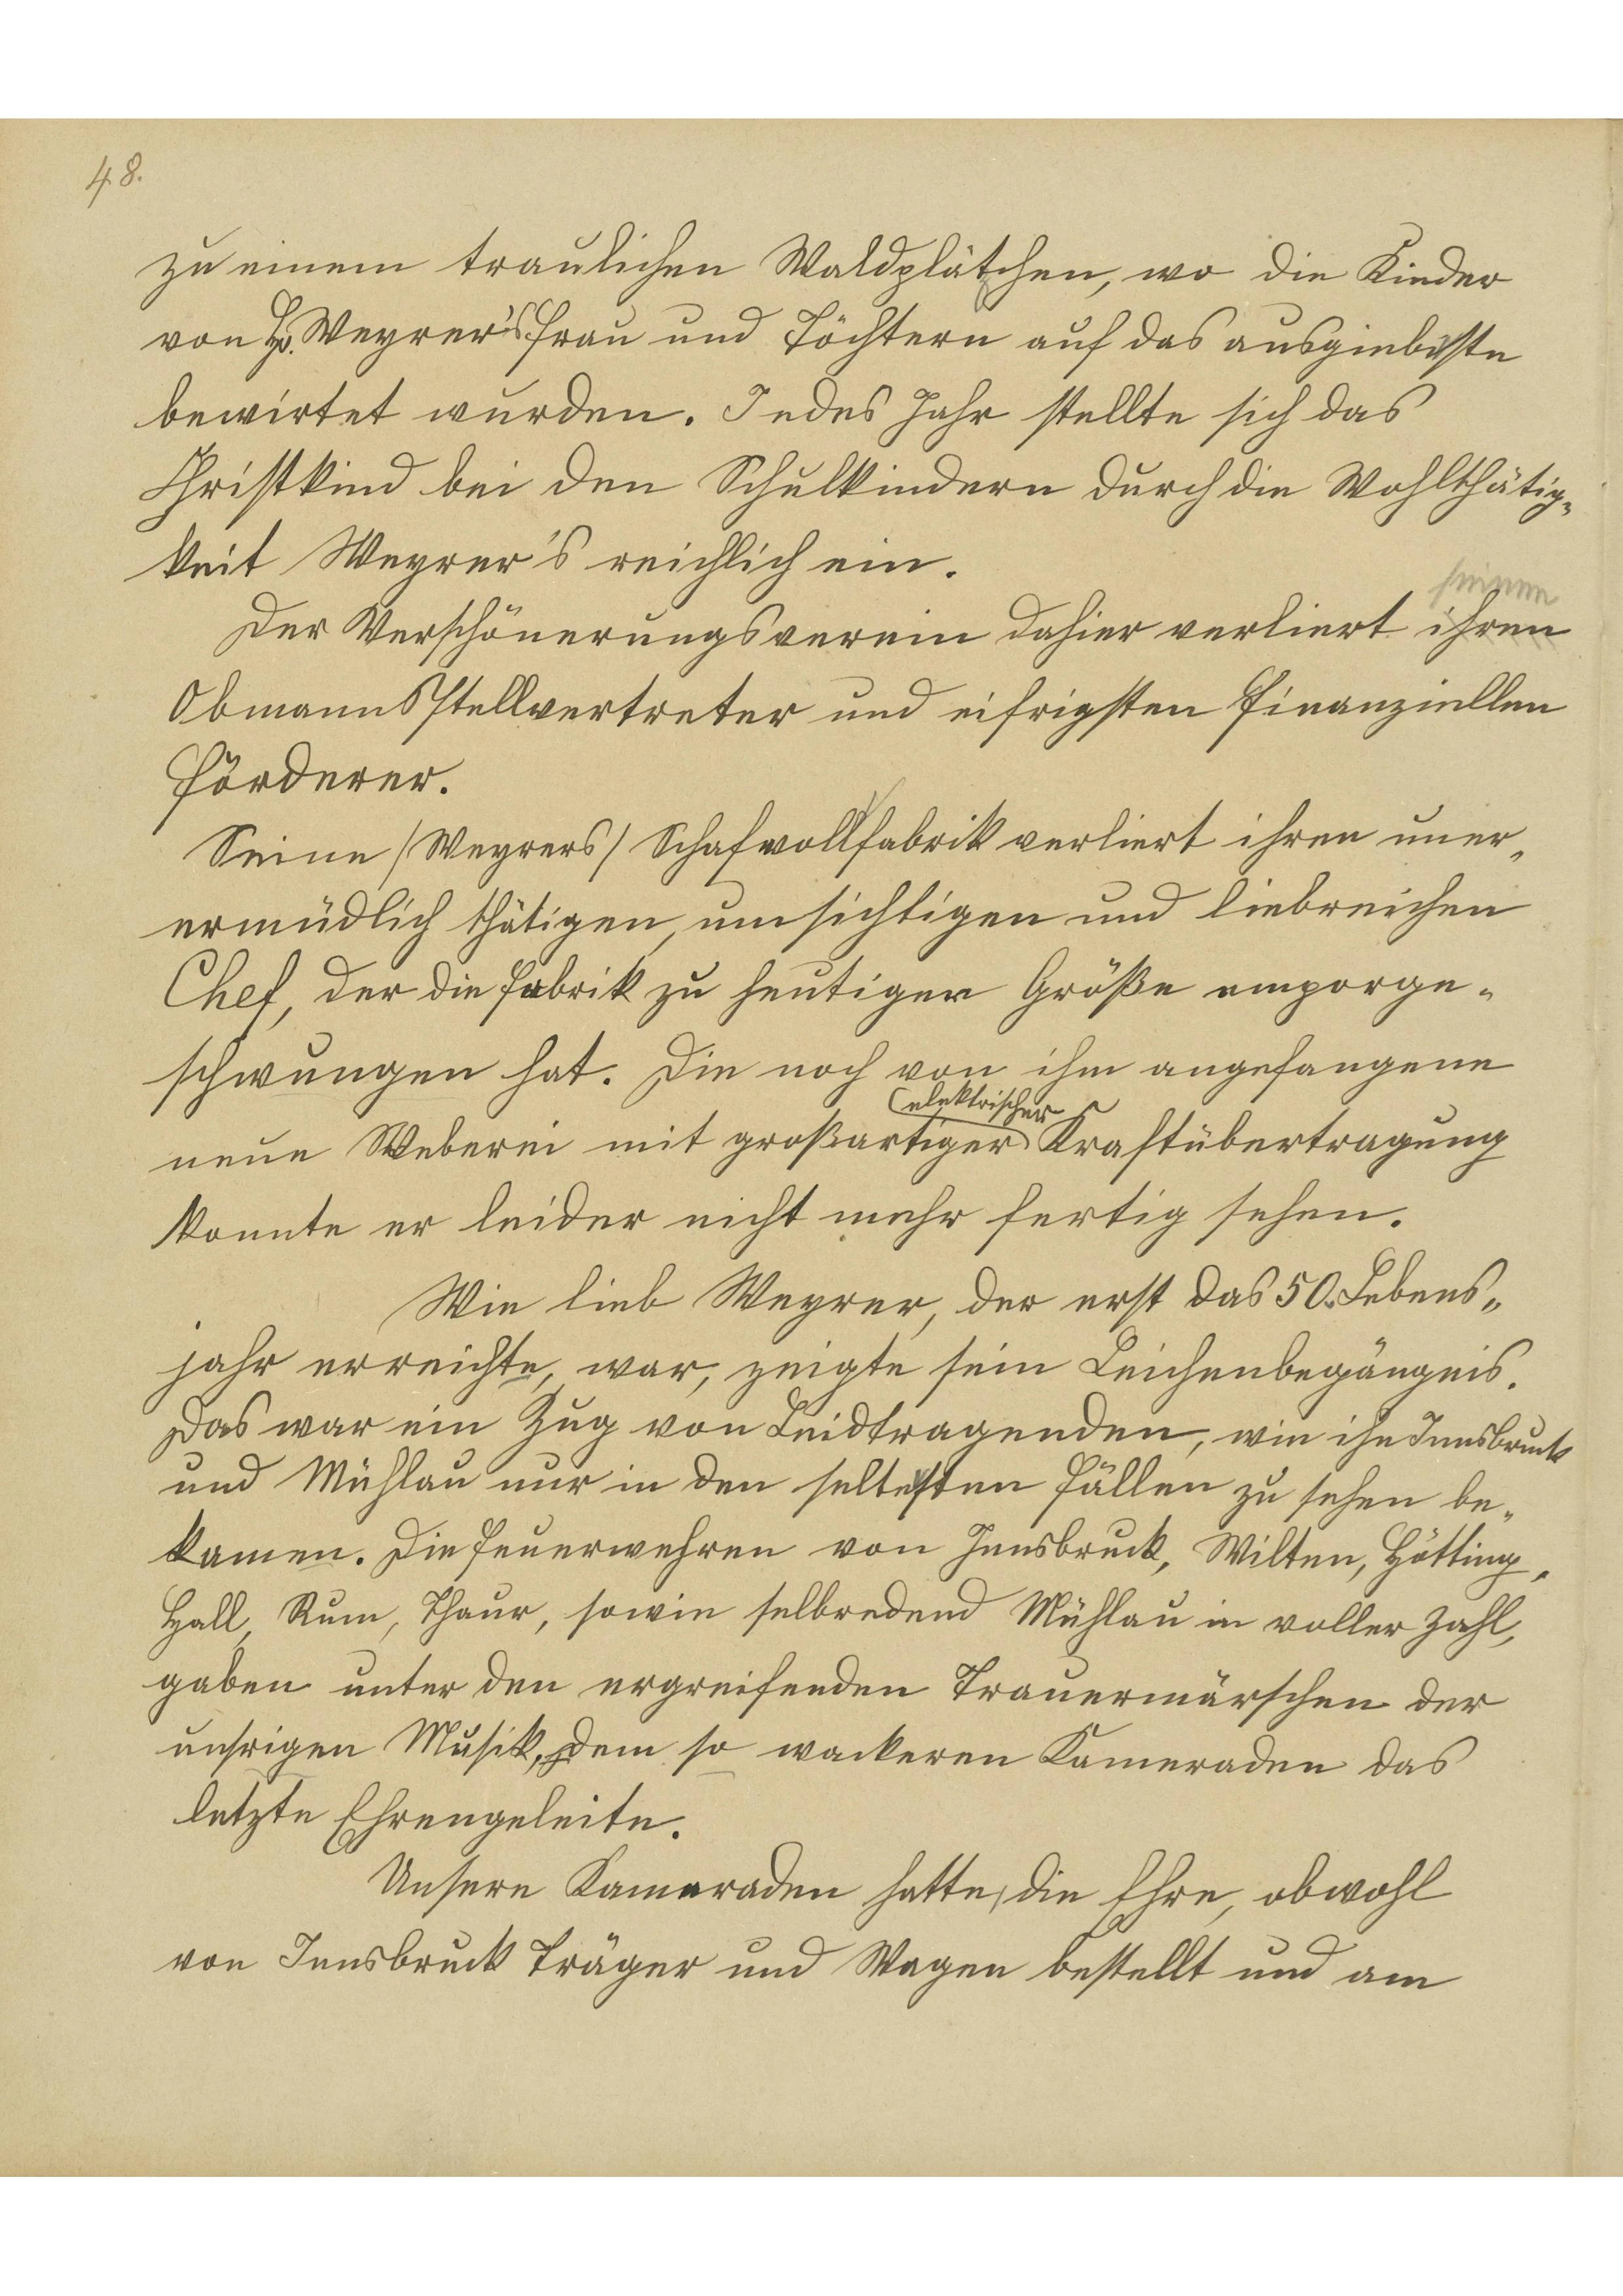 48.
zu einem traulichen Waldplätchen, wo die Kinder
von H. Weyrer's Frau und Töchtern auf das ausgiebiste
bewirtet wurden. Jedes Jahr stellte sich das
Christkind bei den Schulkindern durch die Wohlthätig=
keit Weyrer's reichlich ein.
seinen
Der Verschönerungsverein dahier verliert ihren
Obmannsstellvertreter und eifrigsten finanziellen
Förderer.
Seine /Weyrers/ Schafwollfabrik verliert ihren uner=
ermüdlich thätigen, umsichtigen und liebreichen
Chef, der die Fabrik zu heutiger Größe emporge=
schwungen hat. Die noch von ihm angefangene
elektrischer
neue Weberei mit großartiger Kraftübertragung
konnte er leider nicht mehr fertig sehen.
Wie lieb Weyrer, der erst das 50. Lebens=
jahr erreichte, war, zeigte sein Leichenbegängnis.
Das war ein Zug von Leidtragenden, wie ihn Innsbruck
und Mühlau nur in den seltesten Fällen zu sehen be=
kamen. Die Feuerwehren von Innsbruck, Wilten, Hötting,
Hall, Rum, Thaur, sowie selbredend Mühlau in voller Zahl,
gaben unter den ergreifenden Trauermärschen der
unsrigen Musik, dem so wackeren Kameraden das
letzte Ehrengeleite.
Unsere Kameraden hatte, die Ehre, obwohl
von Innsbruck Träger und Wagen bestellt und am